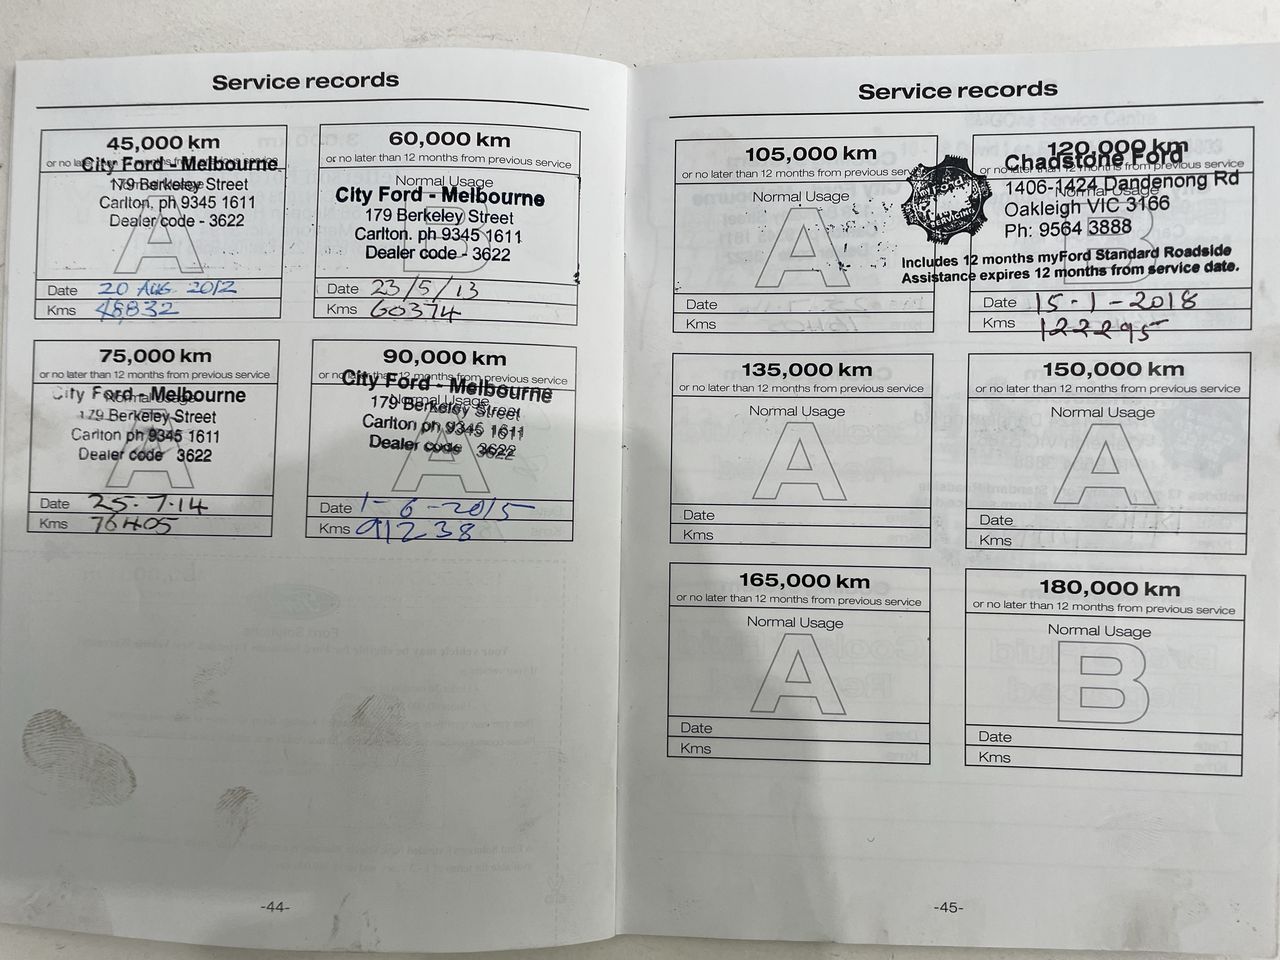 Service records
45,000 km
or no later than 12 months from previous service
City Ford - Melbourne
Normal Usage
179 Berkeley Street
Carlton. ph 9345 1611
Dealer code - 3622
A
Date 20 AUG 2012
Kms 45832
60,000 km
or no later than 12 months from previous service
Normal Usage
City Ford - Melbourne
179 Berkeley Street
Carlton. ph 9345 1611
Dealer code - 3622
B
Date 23/5/13
Kms 60374
75,000 km
or no later than 12 months from previous service
City Ford - Melbourne
Normal Usage
179 Berkeley Street
Carlton ph 9345 1611
Dealer code 3622
A
Date 25.7.14
Kms 76405
90,000 km
or no later than 12 months from previous service
City Ford - Melbourne
Normal Usage
179 Berkeley Street
Carlton ph 9345 1611
Dealer code 3622
A
Date 1-6-2015
Kms 91238
-44-
Service records
105,000 km
or no later than 12 months from previous serv
Normal Usage
A
Date
Kms
120,000 km
or no later than 12 months from previous service
Chadstone Ford
Normal Usage
1406-1424 Dandenong Rd
Oakleigh VIC 3166
Ph: 9564 3888
B
Includes 12 months myFord Standard Roadside
Assistance expires 12 months from service date.
Date 15-1-2018
Kms 122295
135,000 km
or no later than 12 months from previous service
Normal Usage
A
Date
Kms
150,000 km
or no later than 12 months from previous service
Normal Usage
A
Date
Kms
165,000 km
or no later than 12 months from previous service
Normal Usage
A
Date
Kms
180,000 km
or no later than 12 months from previous service
Normal Usage
B
Date
Kms
-45-